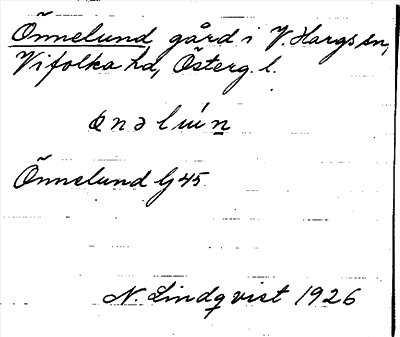 Önnelund gård i V. Hargs sn,
Vifolka hd, Österg. l.
Önnelund Gj 45
N. Lindqvist 1926